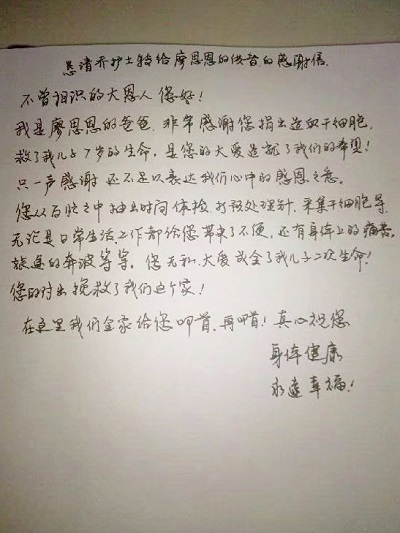 恳请乔护士转给廖思恩的供者的感谢信.
不曾相识的大恩人您好!
我是廖思恩的爸爸.非常感谢您捐出造血干细胞.
救了我儿子7岁的生命.是您的大爱造就了我们的希望!
只一声感谢还不足以表达我们心中的感恩之意.
您从百忙之中抽出时间体检.打预处理针.采集干细胞等.
无论是日常生活.工作都给您带来了不便.还有身体上的痛苦.
旅途的奔波等等.您无私.大爱成全了我儿子二次生命!
您的付出挽救了我们这个家!
在这里我们全家给您叩首.再叩首!真心祝您
身体健康
永远幸福!